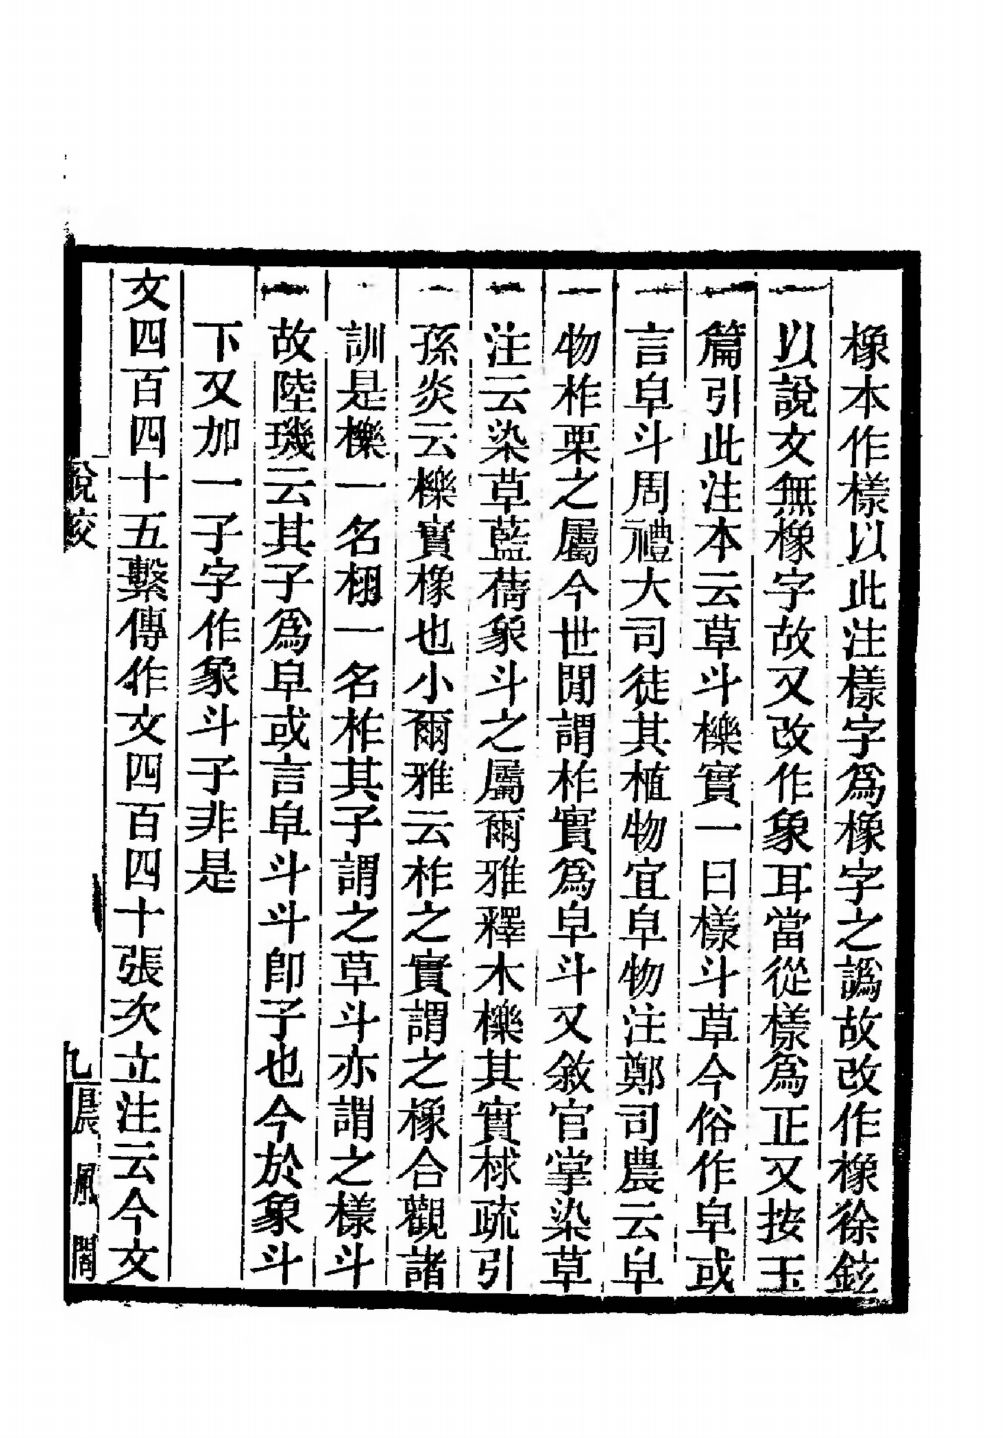 橡本作樣以此注樣字爲橡字之譌故改作橡徐鉉
以說文無橡字故又改作象耳當從樣爲正又按玉
篇引此注本云草斗櫟實一曰樣斗草今俗作皁或
言皁斗周禮大司徒其植物宜皁物注鄭司農云皁
物柞栗之屬今世閒謂柞實爲皁斗又敘官掌染草
注云染草藍蒨象斗之屬爾雅釋木櫟其實梂疏引
孫炎云櫟實橡也小爾雅云柞之實謂之橡合觀諸
訓是櫟一名栩一名柞其子謂之草斗亦謂之樣斗
故陸璣云其子爲皁或言皁斗斗卽子也今於象斗
下又加一子字作象斗子非是
文四百四十五繫傳作文四百四十張次立注云今文
說校
九
晨風閣